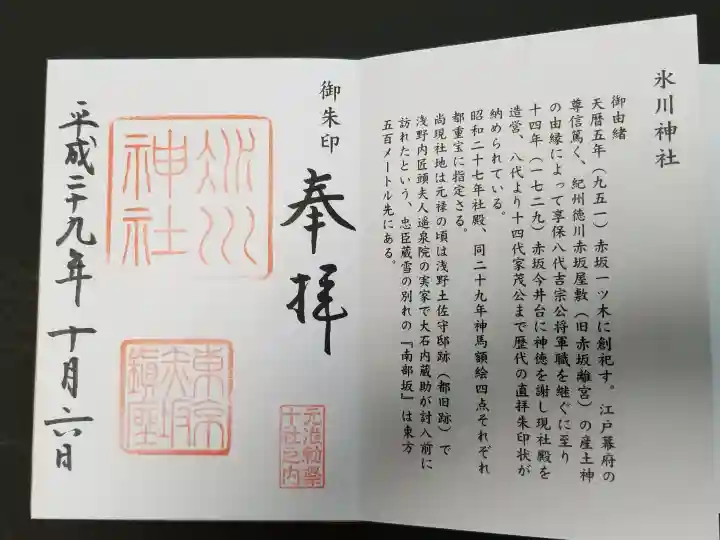 氷川神社
御由緒
天暦五年（九五一）赤坂一ツ木に創祀す。江戸幕府の
尊信篤く、紀州徳川赤坂屋敷（旧赤坂離宮）の産土神
の由縁によって享保八代吉宗公将軍職を継ぐに至り
十四年（一七二九）赤坂今井台に神徳を謝し現社殿を
造営、八代より十四代家茂公まで歴代の直拝朱印状が
納められている。
昭和二十七年社殿、同二十九年神馬額絵四点それぞれ
都重宝に指定さる。
尚現社地は元禄の頃は浅野土佐守邸跡（都旧跡）で
浅野内匠頭夫人遥泉院の実家で大石内蔵助が討入前に
訪れたという、忠臣蔵雪の別れの『南部坂』は東方
五百メートル先にある。
御朱印
奉拝
元准勅祭
十社之内
氷川
神社
東京
赤坂
鎮座
平成二十九年十月六日